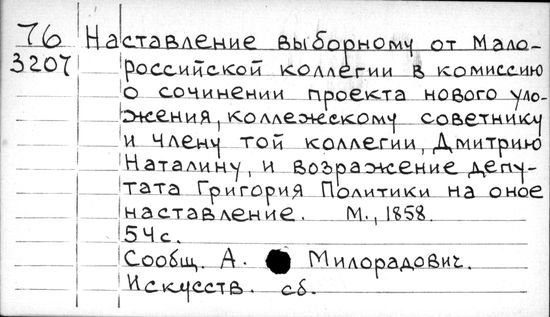 76 Наставление выборному от Мало-
3207 российской коллегии в комиссию
о сочинении проекта нового уло-
жения, коллежскому советнику
и члену той коллегии, Дмитрию
Наталину, и возражение депу-
тата Григория Политики на оное
наставление. М., 1858.
54 с.
Сообщ. А. Милорадович.
Искусств. сб.